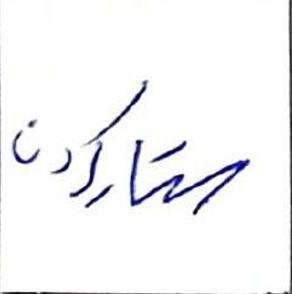 ستارکردن